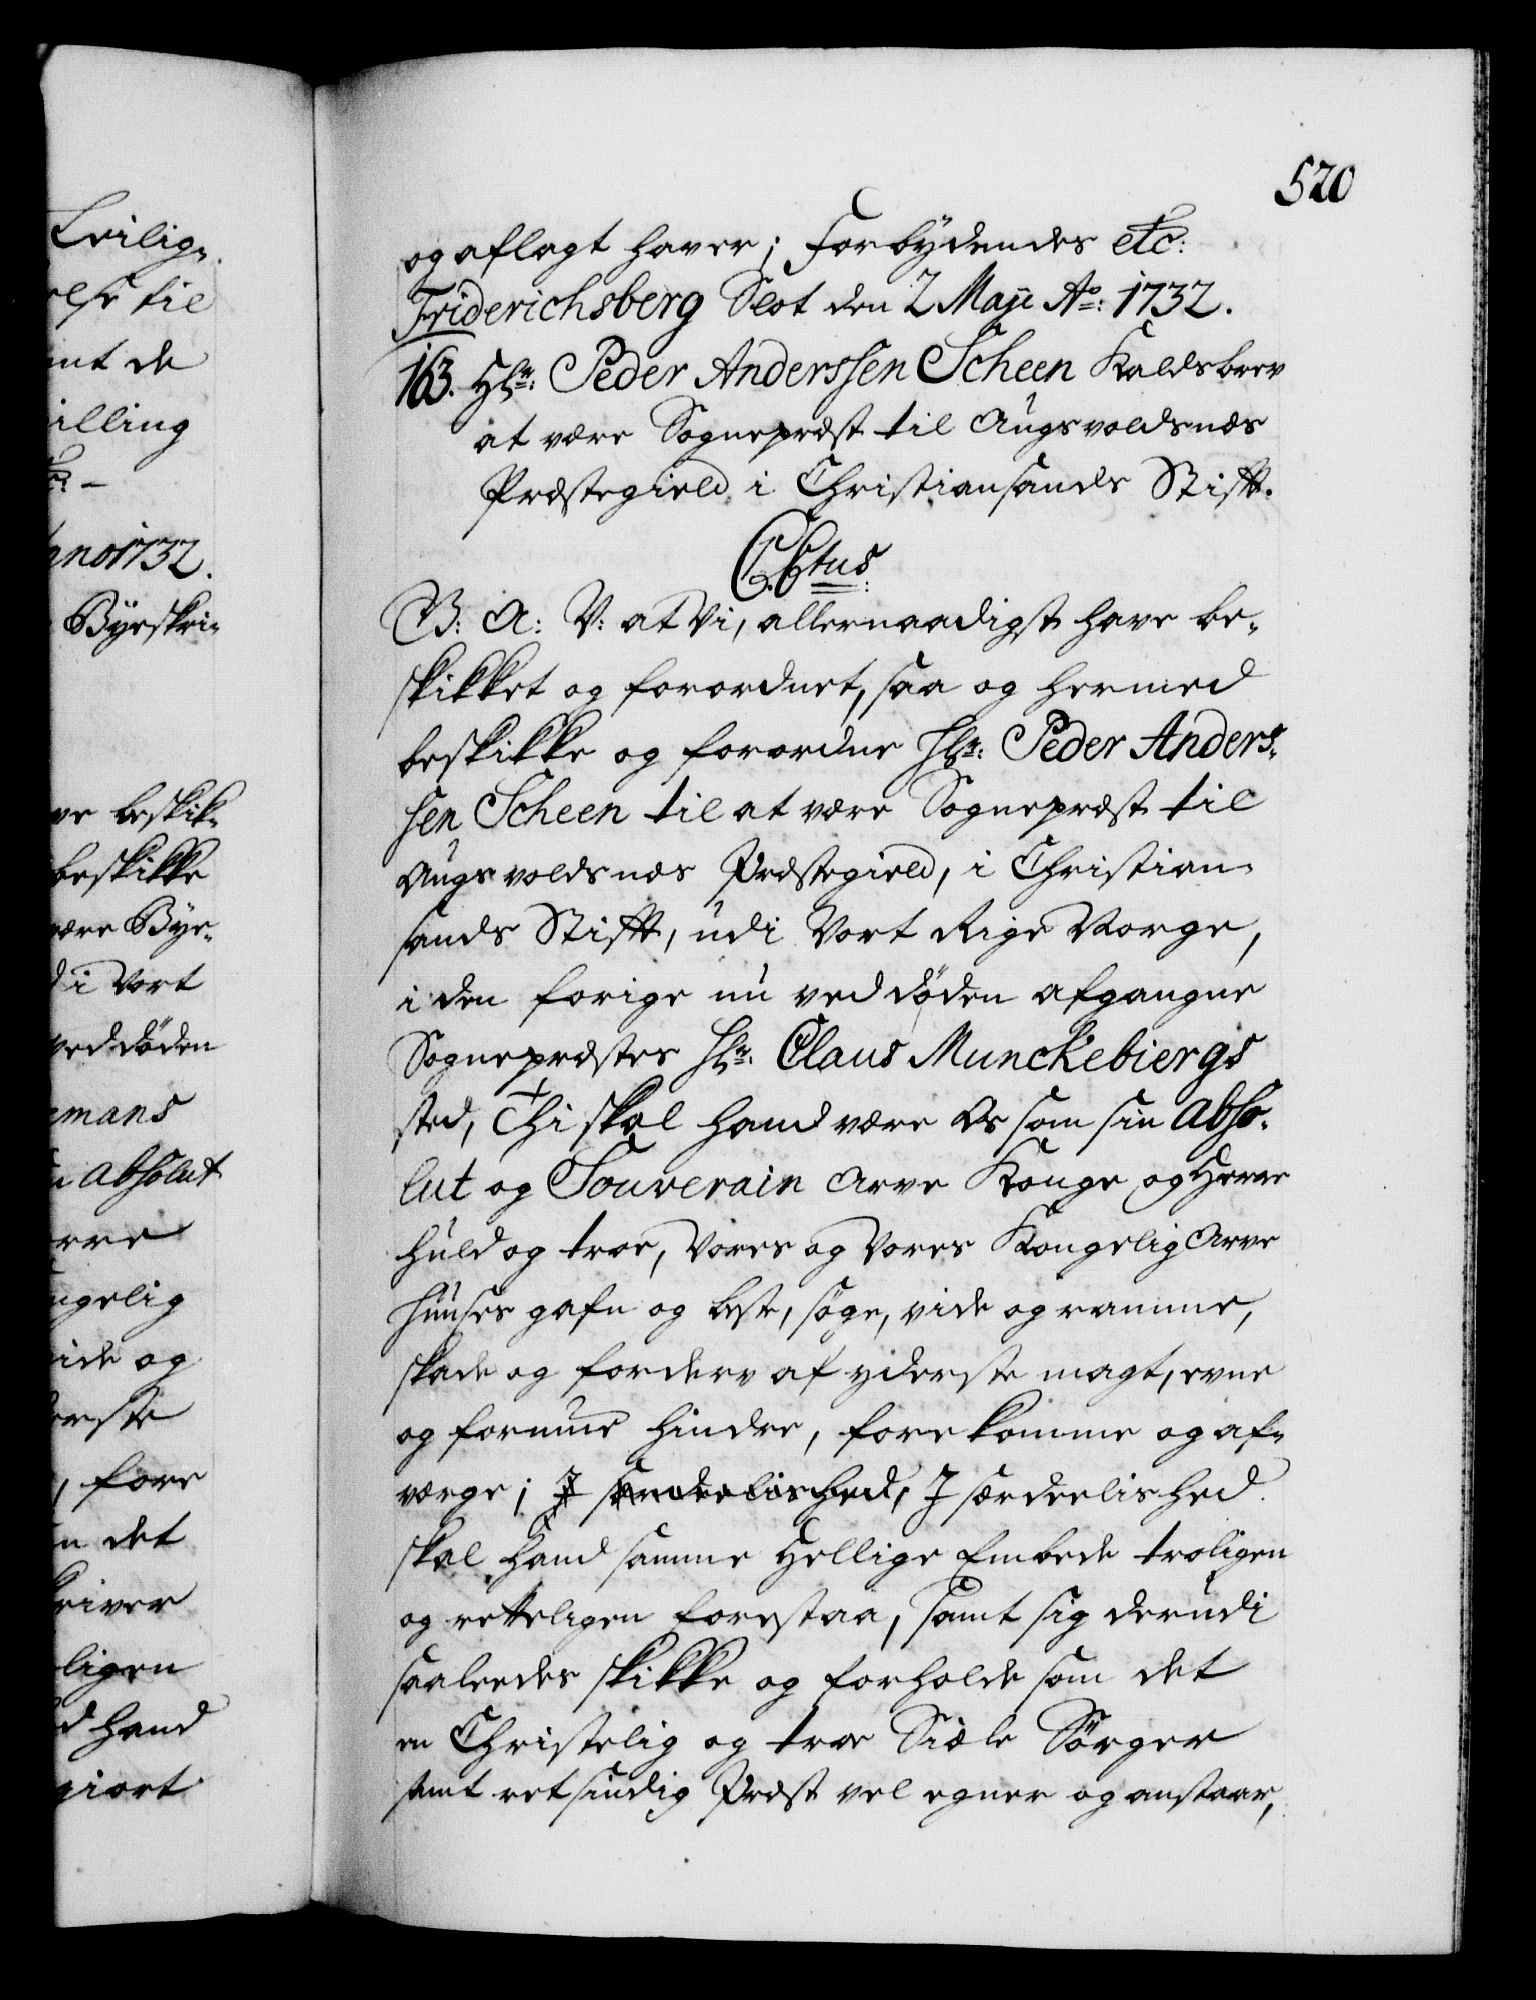 520
og aflagt haver; Forbydendes etc:
Friderichsberg Slot den 2 Maji Ao: 1732.
163. Hr: Peder Anderssen Scheen Kaldsbrev
at være Sognepræst til Augsvoldsnæs
Præstegield i Christiansands Stift.
C. 6tus
G: A: V: at Vi, allernaadigst have be-
skikket og forordnet, saa og hermed
beskikke og forordne Hr: Peder Anders-
sen Scheen til at være Sognepræst til
Augsvoldsnæs Præstegield, i Christian-
sands Stift, udi Vort Rige Norge,
i den forige nu ved döden afgangne
Sognepræstes Hr: Claus Munckebiergs
sted, Thi skal hand være Os som sin Abso-
lut og Souverain Arve Konge og Herre
huld og troe, Vores og Vores Kongelig Arve
Huuses gafn og beste, söge, vide og ramme,
skade og forderv af yderste magt, evne
og formue hindre, forekomme og af-
værge; I særdeelished, I særdeelished
skal hand samme Hellige Embede troligen
og retteligen forestaa, samt sig derudi
saaledes skikke og forholde som det
en Christelig og troe Siæle Sörger
samt retsindig Præst vel egner og anstaar,
Leilig-
else til
amt de
illing
Anno 1732.
Byeskri-
ve beskik-
beskikke
være Bye-
d i Vort
ved döden
emans
n absolut
erre
ngelig
ide og
derste
, fore
n det
kriver
ligen
d hand
giort